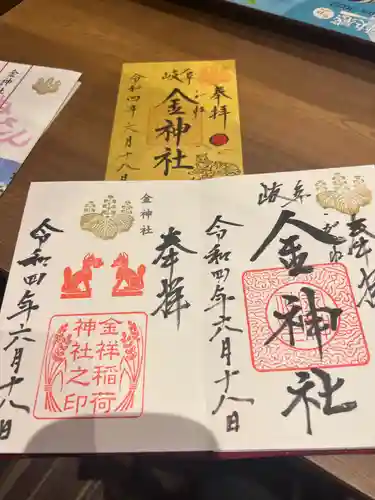 岐阜
奉拝
金神社
令和四年六月十八日
金神社
奉拝
金祥稲荷
神社之印
令和四年六月十八日
岐阜
奉拝
金神社
令和四年六月十八日
金神社